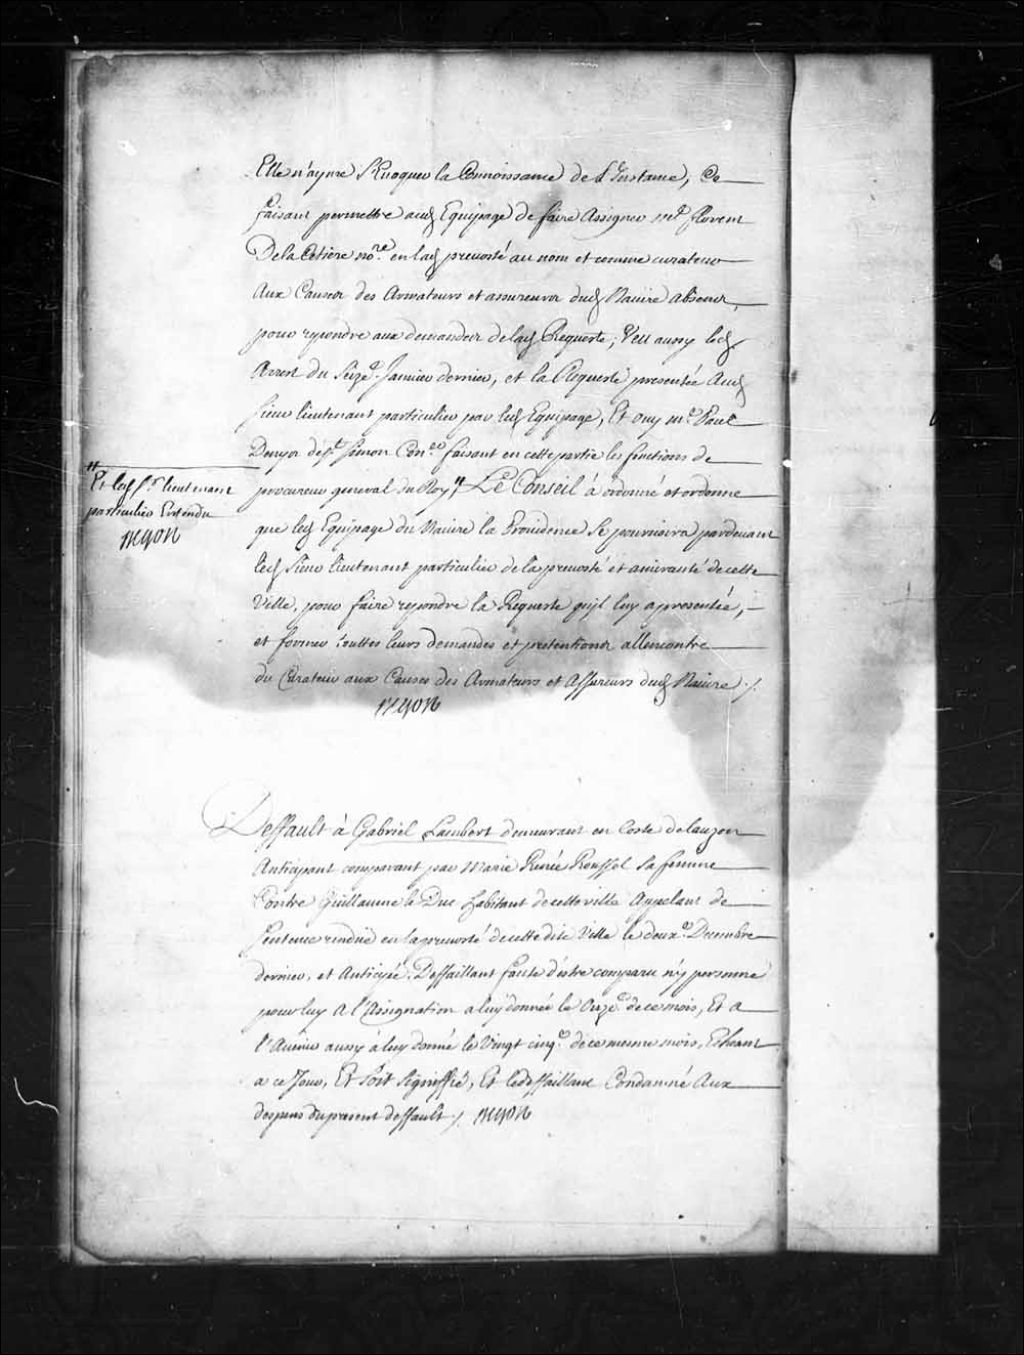 Elle n'ayme l'Evoquer la Connoissance de L'Instance, Ce
faisant permettre aud Equipage de faire Assigner Me florent
De la Cetiere nore en lad prevosté au nom et comme curateur
Aux Causes des Armateurs et assureurs dud Navire absens,
pour repondre aux demandes de lad Requeste; Veu aussy led
Arrest du Seize Janvier dernier, et la Requeste presentée Aud
sieur lieutenant particulier par led Equipage, Et ouy Me Paul
Denys de St Simon Coner faisant en cette partie les fonctions de
procureur general du Roy # Le Conseil à ordonné et ordonne
# Et led Sr lieutenant
particulier Entendu
que led Equipage du Navire la Providence Se pourvoira pardevant
led sieur lieutenant particulier de la prevosté et amirauté de cette
Ville, pour faire repondre la Requeste qu'il luy a presentée,
et former touttes leurs demandes et pretentions allencontre
du Curateur aux Causes des Armateurs et Assureurs dud Navire ./.
Deffault à Gabriel Lambert demeurant en Coste de lauzon
Anticipant comparant par Marie Renée Roussel Sa femme
Contre Guillaume le Duc habitant de cette ville Appelant de
Sentence rendüe en la prevosté de cette dite Ville le deuxe Decembre
dernier, et Anticipé. Deffaillant faute d'estre comparu n'y personne
pour luy A l'Assignation a luy donnée le Onze de ce mois, Et a
l'Avenir aussy à luy donné le Vingt cinqe de ce mesme mois, Echeant
a ce Jour, Et Soit Signiffié, Et le deffaillant Condamné Aux
despens du present deffault ./.